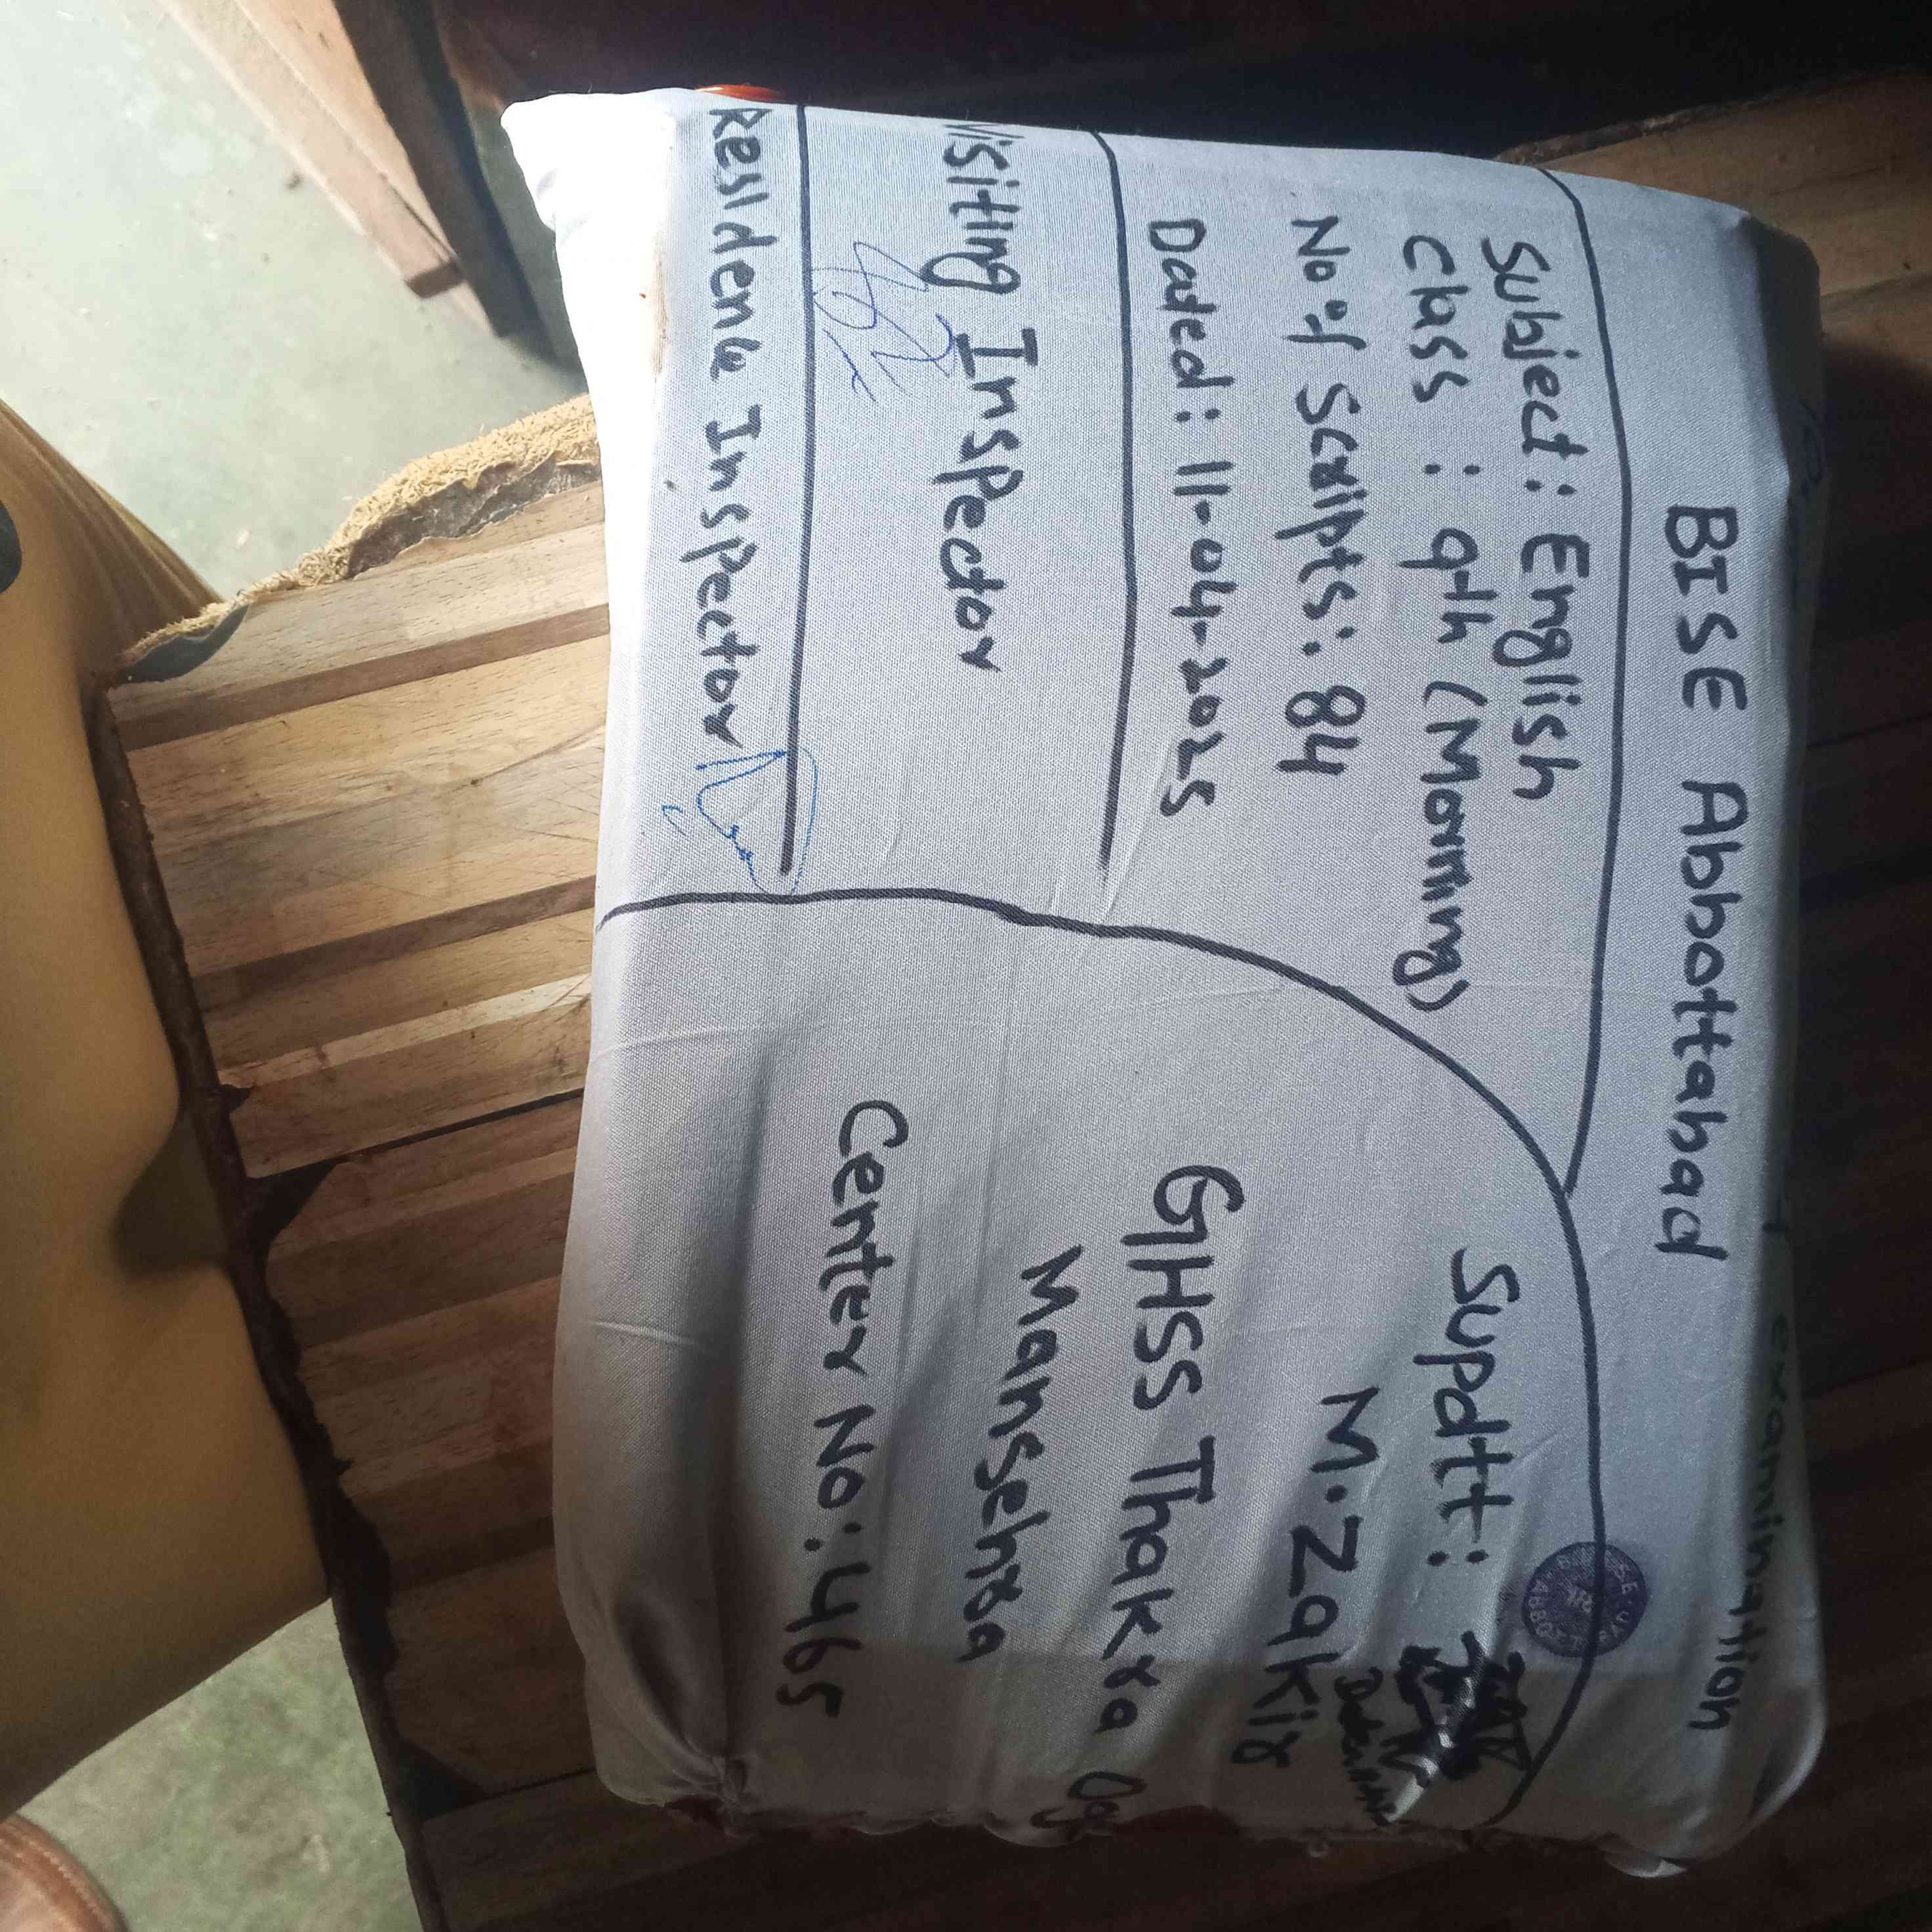 examination
BISE Abbottabad
Subject: English
Class: 9th (Morning)
No of Scripts: 84
Dated: 11-04-2025
Visiting Inspector
Residence Inspector
Supdtt:
M. Zakir
GHSS Thakra
Mansehra
Center No: 465